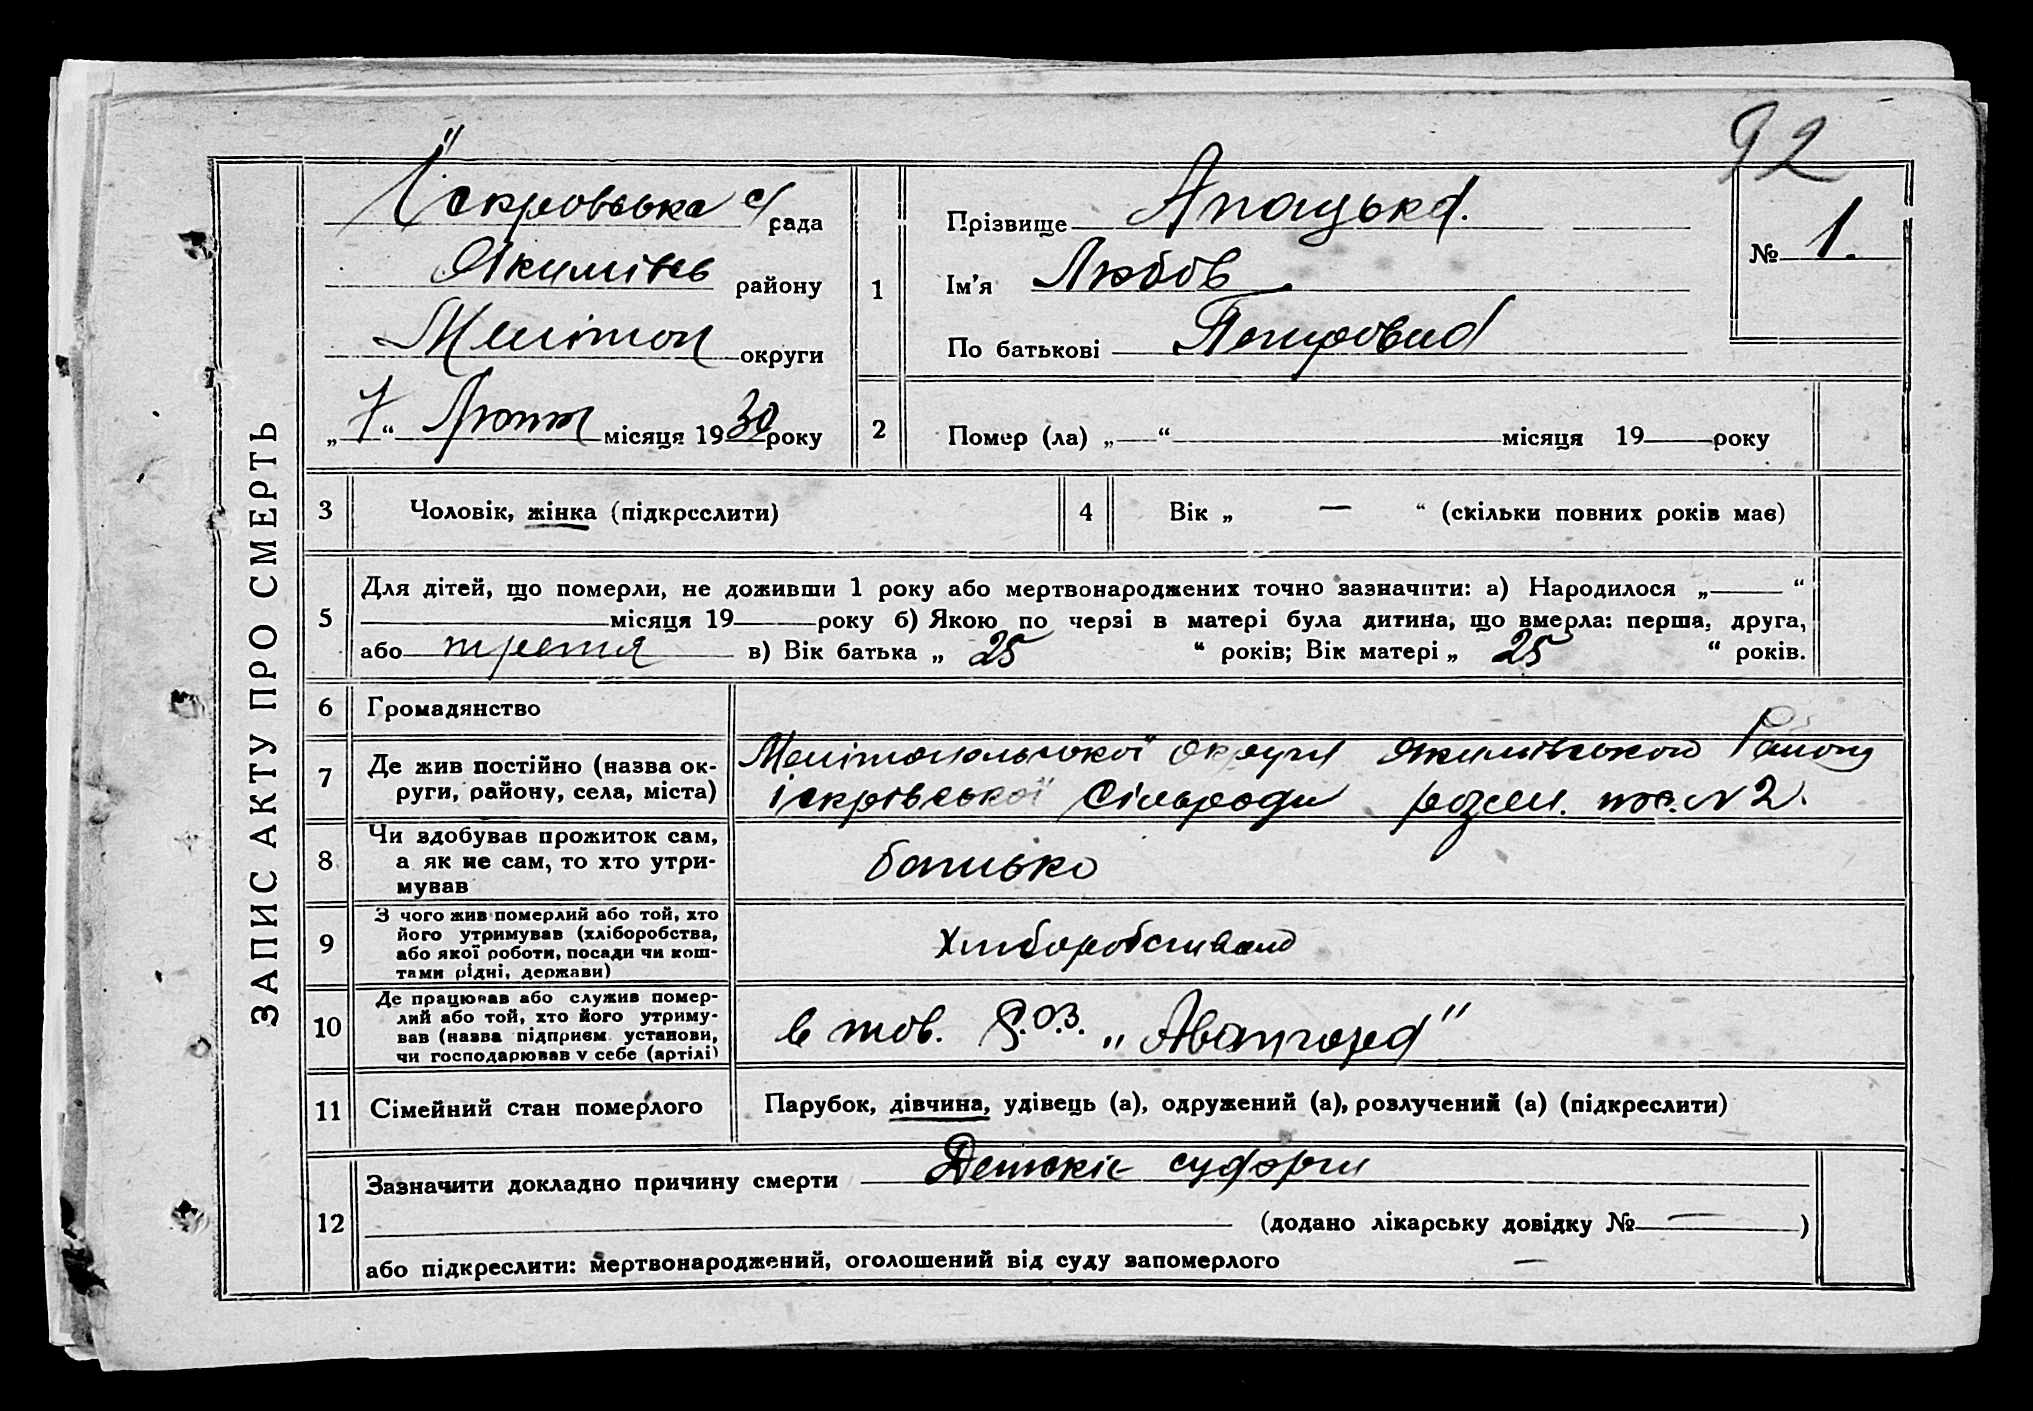 92
ЗАПИС АКТУ ПРО СМЕРТЬ
Іскровська с/рада
Якимівсь району
Меліտоп округи
„7“ Лютт місяця 1930 року
1
Прізвище Апацька.
Ім'я Любов
По батькові Петровна
№ 1.
2 Помер (ла) „ “ місяця 19 року
3 Чоловік, жінка (підкреслити)
4 Вік „ — “ (скільки повних років має)
5 Для дітей, що померли, не доживши 1 року або мертвонароджених точно зазначити: а) Народилося „ “
місяця 19 року б) Якою по черзі в матері була дитина, що вмерла: перша, друга,
або третя в) Вік батька „ 25 “ років; Вік матері „ 25 “ років.
6 Громадянство
7 Де жив постійно (назва ок-
руги, району, села, міста)
Мелітопольської округи Якимівського Району
іскрівської Сільради пос. № 2.
8 Чи здобував прожиток сам,
а як не сам, то хто утри-
мував
батько
9 З чого жив померлий або той, хто
його утримував (хліборобства,
або якої роботи, посади чи кош-
тами рідні, держави)
Хліборобством
10 Де працював або служив помер-
лий або той, хто його утриму-
вав (назва підприєм. установи,
чи господарював у себе (артілі)
в тов. С.О.З. „Авангард"
11 Сімейний стан померлого
Парубок, дівчина, удівець (а), одружений (а), розлучений (а) (підкреслити)
12 Зазначити докладно причину смерти Детскіє
(додано лікарську довідку № — )
або підкреслити: мертвонароджений, оголошений від суду запомерлого —